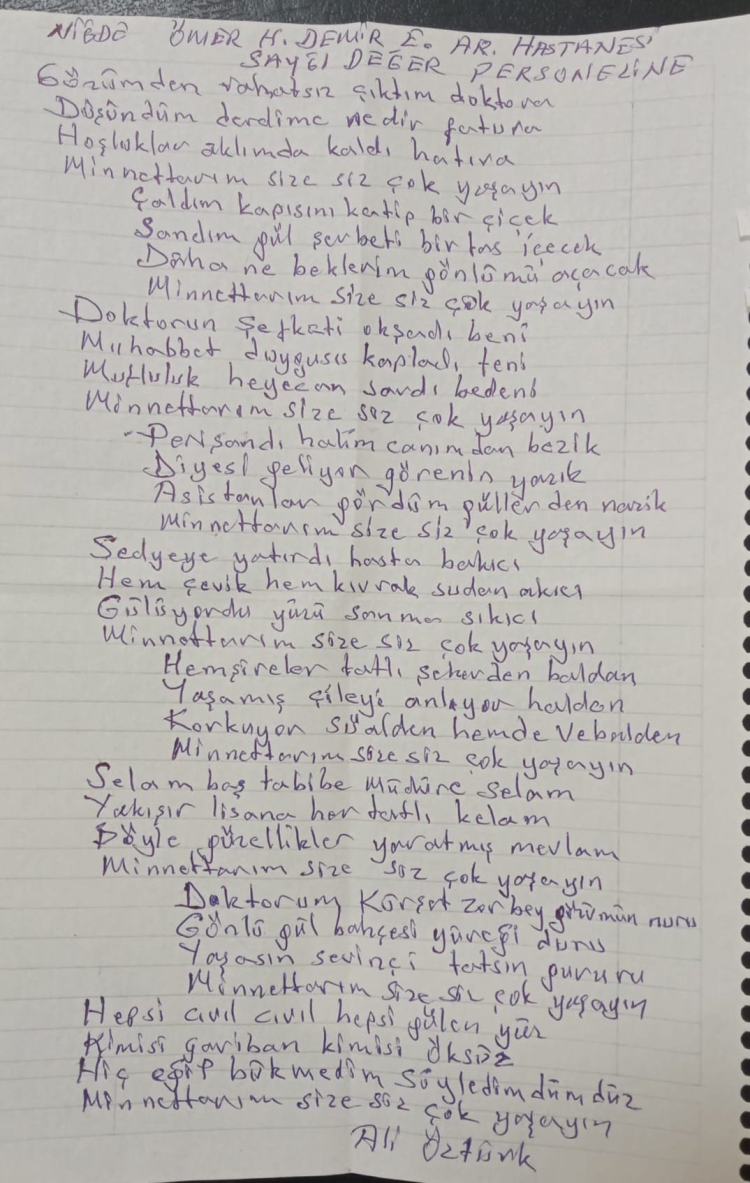 NİĞDE ÖMER H. DEMİR E. AR. HASTANESİ
SAYGI DEĞER PERSONELİNE
Gözümden rahatsız çıktım doktora
Düşündüm derdime nedir fatura
Hoşluklar aklımda kaldı hatıra
Minnettarım size siz çok yaşayın
Çaldım kapısını katip bir çiçek
Sandım gül şerbeti bir tas içecek
Daha ne beklerim gönlümü açacak
Minnettarım size siz çok yaşayın
Doktorun şefkati okşadı beni
Muhabbet duygusu kapladı teni
Mutluluk heyecan sardı bedeni
Minnettarım size siz çok yaşayın
Perişandı halim canımdan bezik
Diyesi geliyor görenin yazık
Asistanlar gördüm güllerden nazik
Minnettarım size siz çok yaşayın
Sedyeye yatırdı hasta bakıcı
Hem çevik hem kıvrak sudan akıcı
Gülüyordu yüzü sanma sıkıcı
Minnettarım size siz çok yaşayın
Hemşireler tatlı şekerden baldan
Yaşamış çileyi anlıyor haldan
Korkuyor sualden hemde vebalden
Minnettarım size siz çok yaşayın
Selam baş tabibe müdüre selam
Yakışır lisana her tatlı kelam
Böyle güzellikler yaratmış mevlam
Minnettarım size siz çok yaşayın
Doktorum Kürşat zor bey gözümün nuru
Gönlü gül bahçesi yüreği duru
Yaşasın sevinçi tatsın gururu
Minnettarım size siz çok yaşayın
Hepsi cıvıl cıvıl hepsi gülen yüz
Kimisi gariban kimisi öksüz
Hiç eğip bükmedim söyledim dümdüz
Minnettarım size siz çok yaşayın
Ali Öztürk